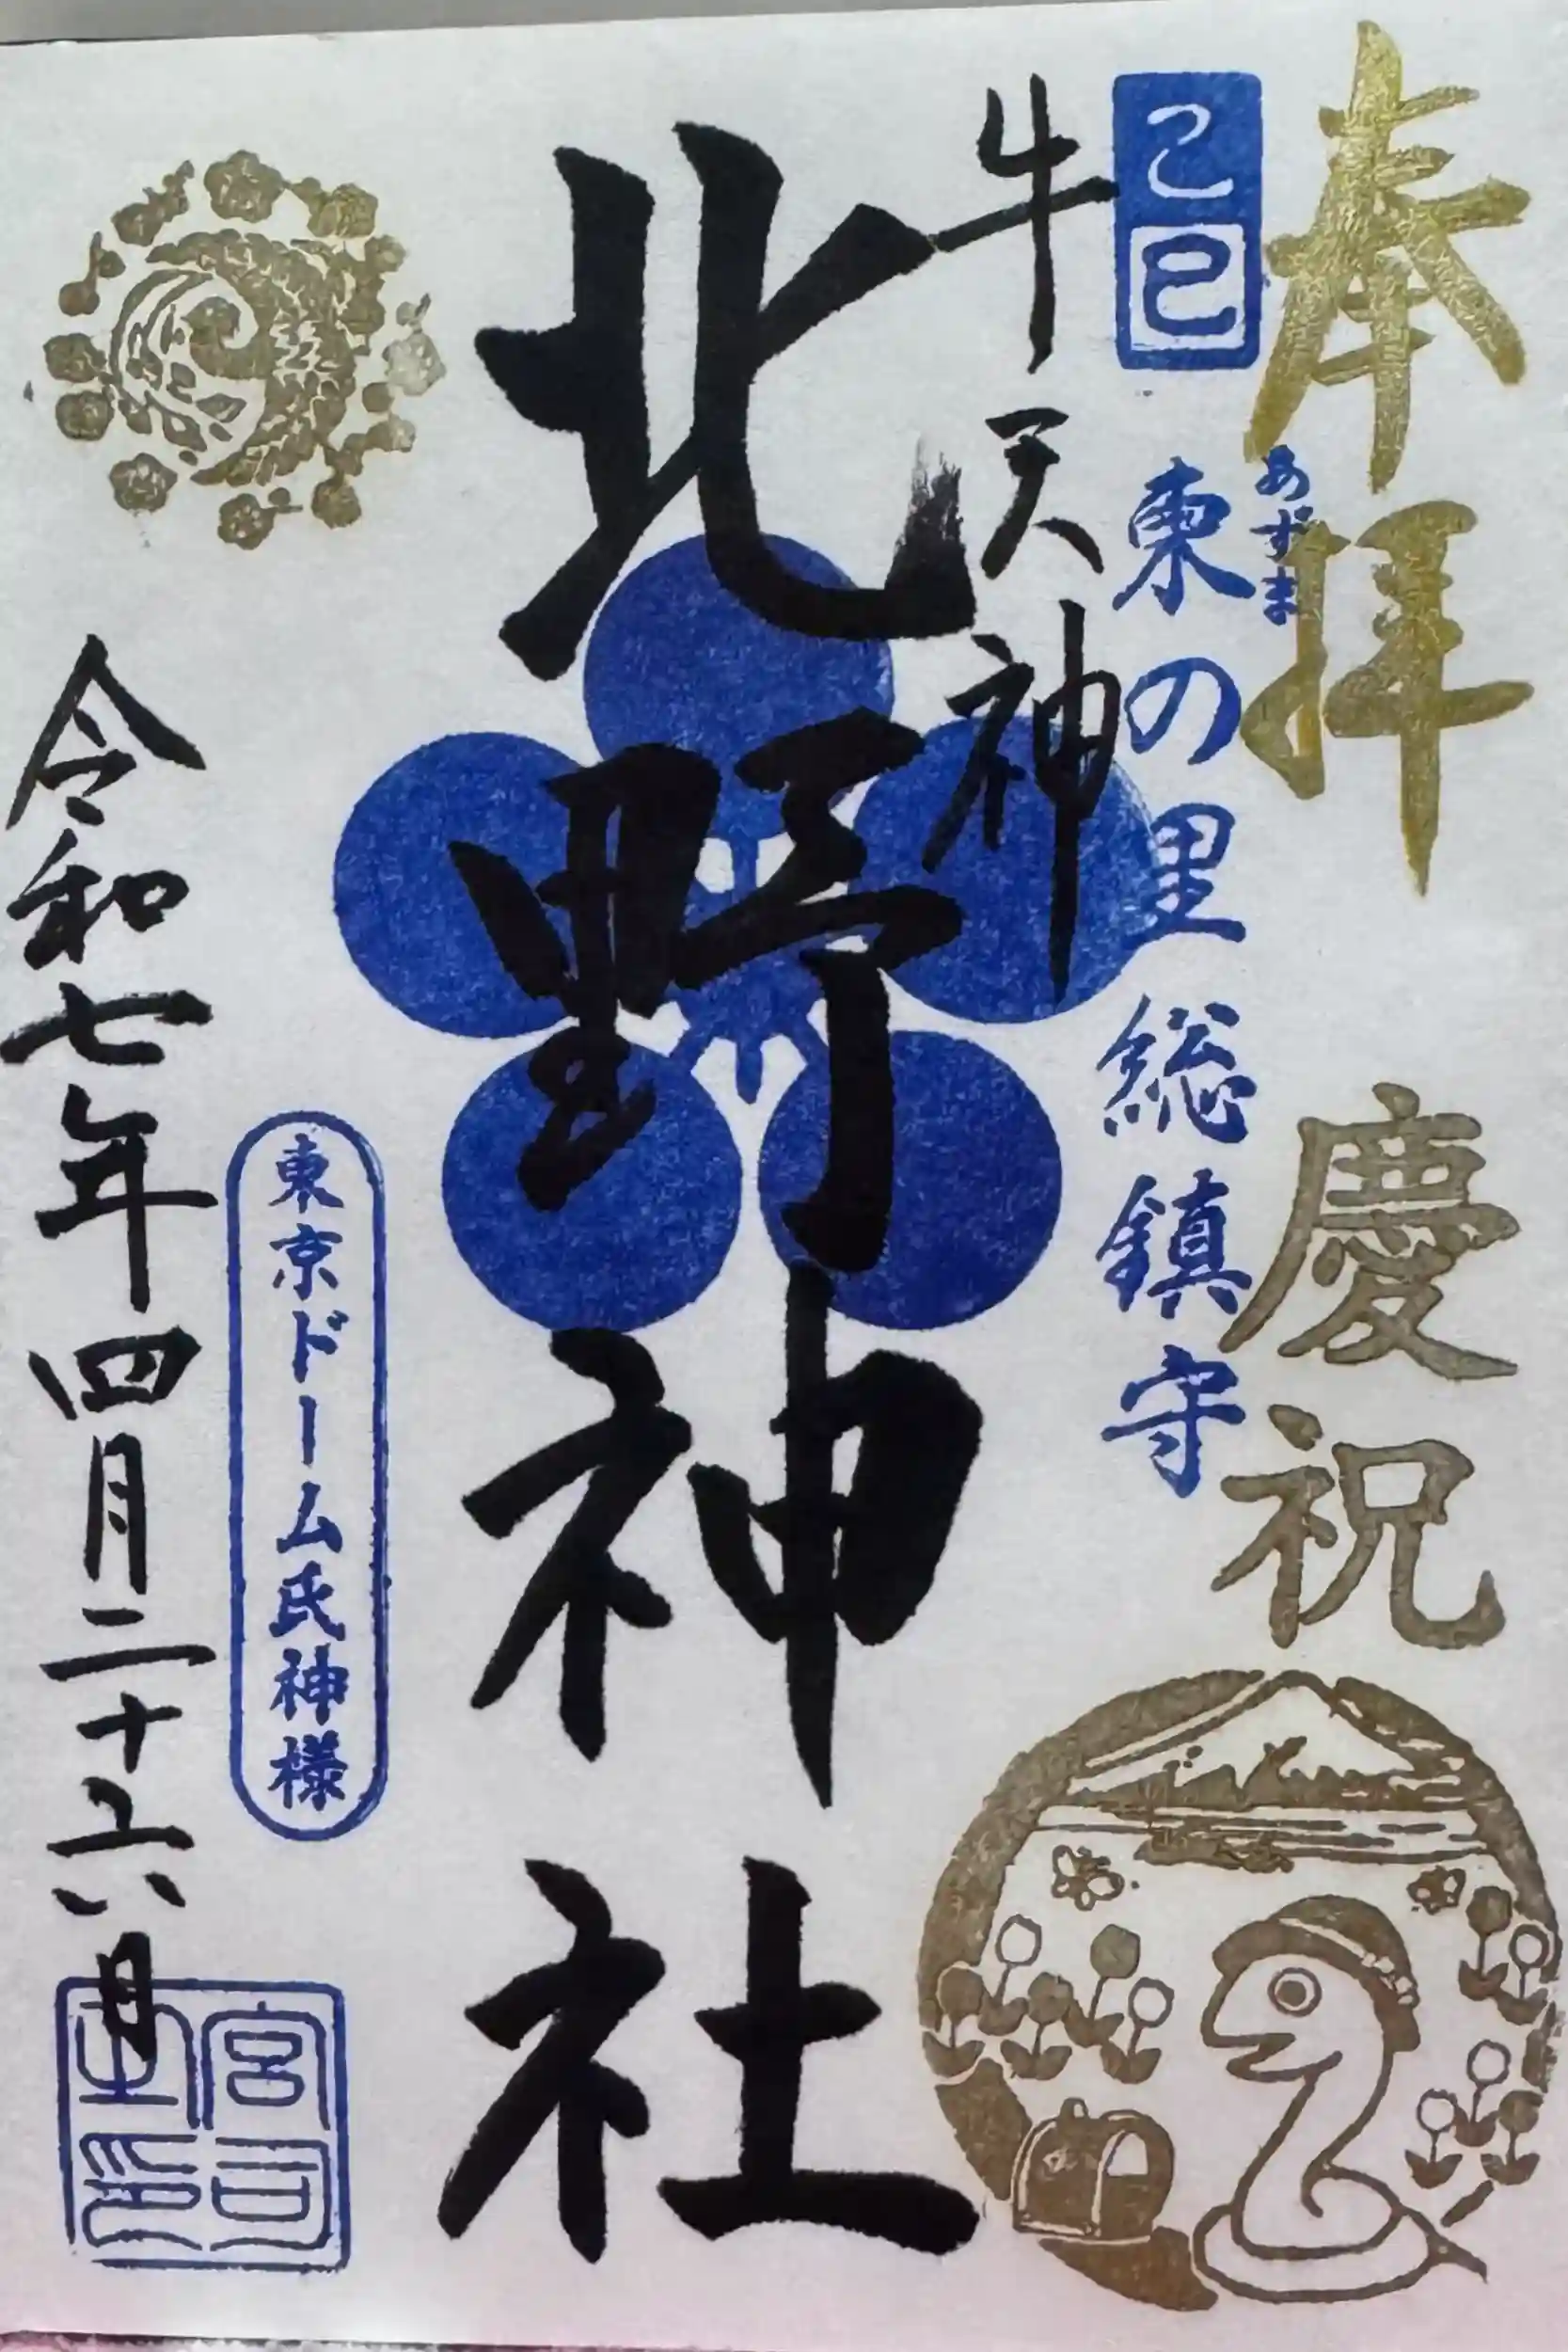 奉拝
慶祝
己巳
東の里総鎮守
あずま
牛天神
北野神社
東京ドーム氏神様
令和七年四月二十六日
宮司之印